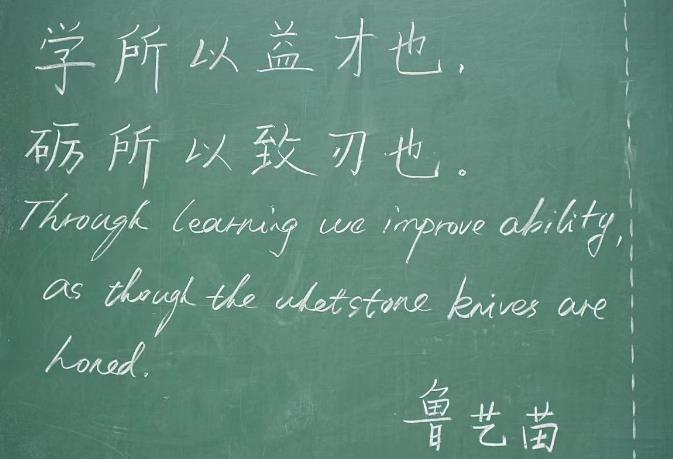 学所以益才也，
砺所以致刃也。
Through learning we improve ability,
as though the whetstone knives are
honed.
鲁艺苗